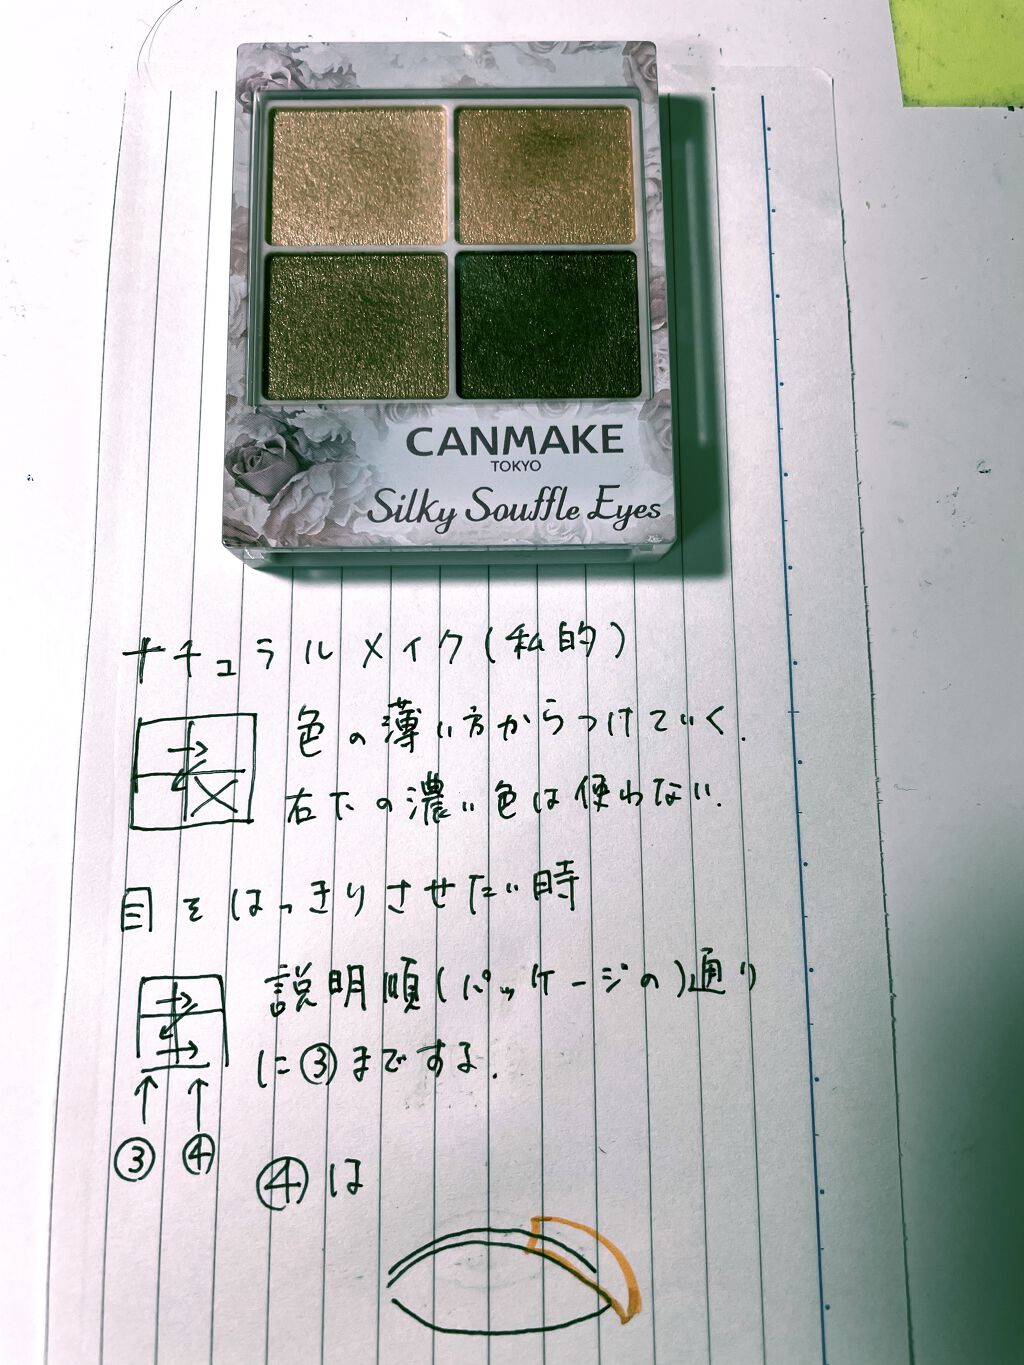 CANMAKE
TOKYO
Silky Souffle Eyes
ナチュラルメイク(私的)
色の薄い方からつけていく.
右下の濃い色は使わない.
目をはっきりさせたい時
説明順(パッケージの)通り
に③までする.
③ ④
④は